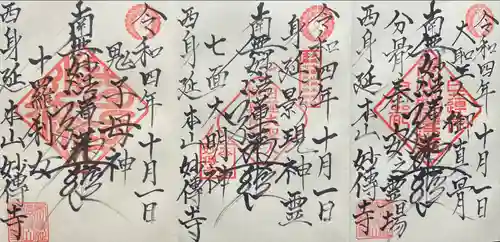 令和四年十月一日
鬼子母神
南無妙法蓮華経
十羅刹女
西身延 本山 妙傳寺
令和四年十月一日
身延景現神霊
南無妙法蓮華経
七面大明神
西身延 本山 妙傳寺
令和四年十月一日
大聖人御真骨
南無妙法蓮華経
分骨奉安之霊場
西身延 本山 妙傳寺